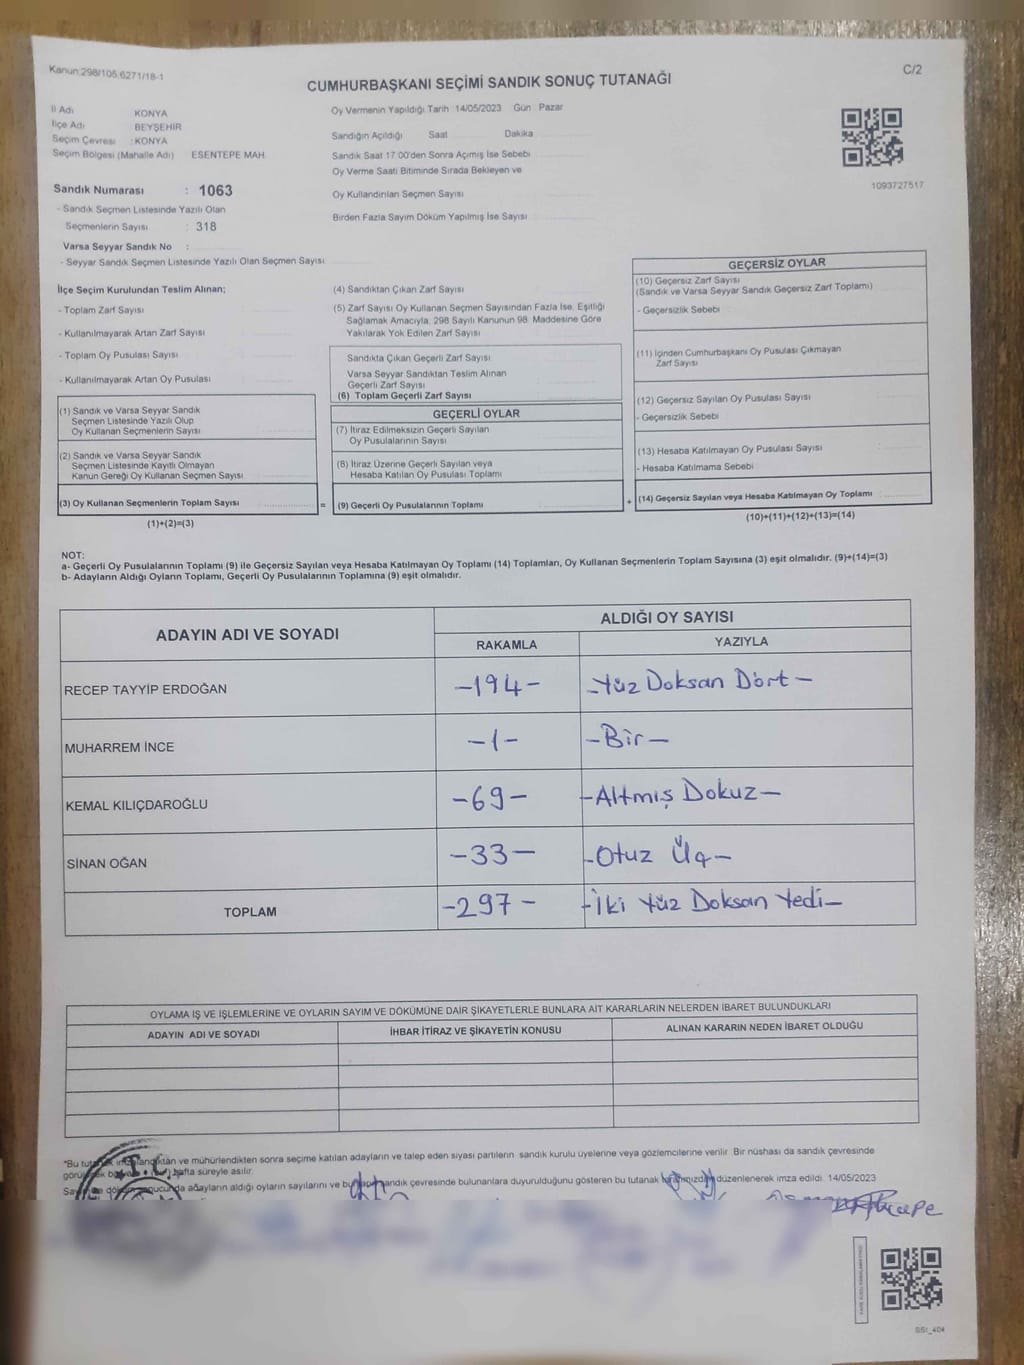 Kanun:298/105,6271/18-1
C/2
CUMHURBAŞKANI SEÇİMİ SANDIK SONUÇ TUTANAĞI
İl Adı KONYA
İlçe Adı BEYŞEHİR
Seçim Çevresi : KONYA
Seçim Bölgesi (Mahalle Adı) ESENTEPE MAH.
Oy Vermenin Yapıldığı Tarih 14/05/2023 Gün Pazar
Sandığın Açıldığı Saat Dakika
Sandık Saat 17:00'den Sonra Açımış İse Sebebi
Oy Verme Saati Bitiminde Sırada Bekleyen ve
Oy Kullandırılan Seçmen Sayısı
Birden Fazla Sayım Döküm Yapılmış İse Sayısı
1093727517
Sandık Numarası : 1063
- Sandık Seçmen Listesinde Yazılı Olan
Seçmenlerin Sayısı : 318
Varsa Seyyar Sandık No :
- Seyyar Sandık Seçmen Listesinde Yazılı Olan Seçmen Sayısı
İlçe Seçim Kurulundan Teslim Alınan;
- Toplam Zarf Sayısı
- Kullanılmayarak Artan Zarf Sayısı
- Toplam Oy Pusulası Sayısı
- Kullanılmayarak Artan Oy Pusulası
(1) Sandık ve Varsa Seyyar Sandık
Seçmen Listesinde Yazılı Olup
Oy Kullanan Seçmenlerin Sayısı
(2) Sandık ve Varsa Seyyar Sandık
Seçmen Listesinde Kayıtlı Olmayan
Kanun Gereği Oy Kullanan Seçmen Sayısı
(3) Oy Kullanan Seçmenlerin Toplam Sayısı
=
(1)+(2)=(3)
(4) Sandıktan Çıkan Zarf Sayısı
(5) Zarf Sayısı Oy Kullanan Seçmen Sayısından Fazla İse, Eşitliği
Sağlamak Amacıyla, 298 Sayılı Kanunun 98. Maddesine Göre
Yakılarak Yok Edilen Zarf Sayısı
Sandıkta Çıkan Geçerli Zarf Sayısı
Varsa Seyyar Sandıktan Teslim Alınan
Geçerli Zarf Sayısı
(6) Toplam Geçerli Zarf Sayısı
GEÇERLİ OYLAR
(7) İtiraz Edilmeksizin Geçerli Sayılan
Oy Pusulalarının Sayısı
(8) İtiraz Üzerine Geçerli Sayılan veya
Hesaba Katılan Oy Pusulası Toplamı
(9) Geçerli Oy Pusulalarının Toplamı
+
GEÇERSİZ OYLAR
(10) Geçersiz Zarf Sayısı
(Sandık ve Varsa Seyyar Sandık Geçersiz Zarf Toplamı)
- Geçersizlik Sebebi
(11) İçinden Cumhurbaşkanı Oy Pusulası Çıkmayan
Zarf Sayısı
(12) Geçersiz Sayılan Oy Pusulası Sayısı
- Geçersizlik Sebebi
(13) Hesaba Katılmayan Oy Pusulası Sayısı
- Hesaba Katılmama Sebebi
(14) Geçersiz Sayılan veya Hesaba Katılmayan Oy Toplamı
(10)+(11)+(12)+(13)=(14)
NOT:
a- Geçerli Oy Pusulalarının Toplamı (9) ile Geçersiz Sayılan veya Hesaba Katılmayan Oy Toplamı (14) Toplamları, Oy Kullanan Seçmenlerin Toplam Sayısına (3) eşit olmalıdır. (9)+(14)=(3)
b- Adayların Aldığı Oyların Toplamı, Geçerli Oy Pusulalarının Toplamına (9) eşit olmalıdır.
ADAYIN ADI VE SOYADI ALDIĞI OY SAYISI
RAKAMLA YAZIYLA
RECEP TAYYİP ERDOĞAN -194- -Yüz Doksan Dört-
MUHARREM İNCE -1- -Bir-
KEMAL KILIÇDAROĞLU -69- -Altmış Dokuz-
SİNAN OĞAN -33- -Otuz Üç-
TOPLAM -297- -İki Yüz Doksan Yedi-
OYLAMA İŞ VE İŞLEMLERİNE VE OYLARIN SAYIM VE DÖKÜMÜNE DAİR ŞİKAYETLERLE BUNLARA AİT KARARLARIN NELERDEN İBARET BULUNDUKLARI
ADAYIN ADI VE SOYADI İHBAR İTİRAZ VE ŞİKAYETİN KONUSU ALINAN KARARIN NEDEN İBARET OLDUĞU
*Bu ve mühürlendikten sonra seçime katılan adayların ve talep eden siyasi partilerin sandık kurulu üyelerine veya gözlemcilerine verilir. Bir nüshası da sandık çevresinde
hafta süreyle asılır.
adayların aldığı oyların sayılarını ve sandık çevresinde bulunanlara duyurulduğunu gösteren bu tutanak düzenlenerek imza edildi. 14/05/2023
T.C.
SSİ_404